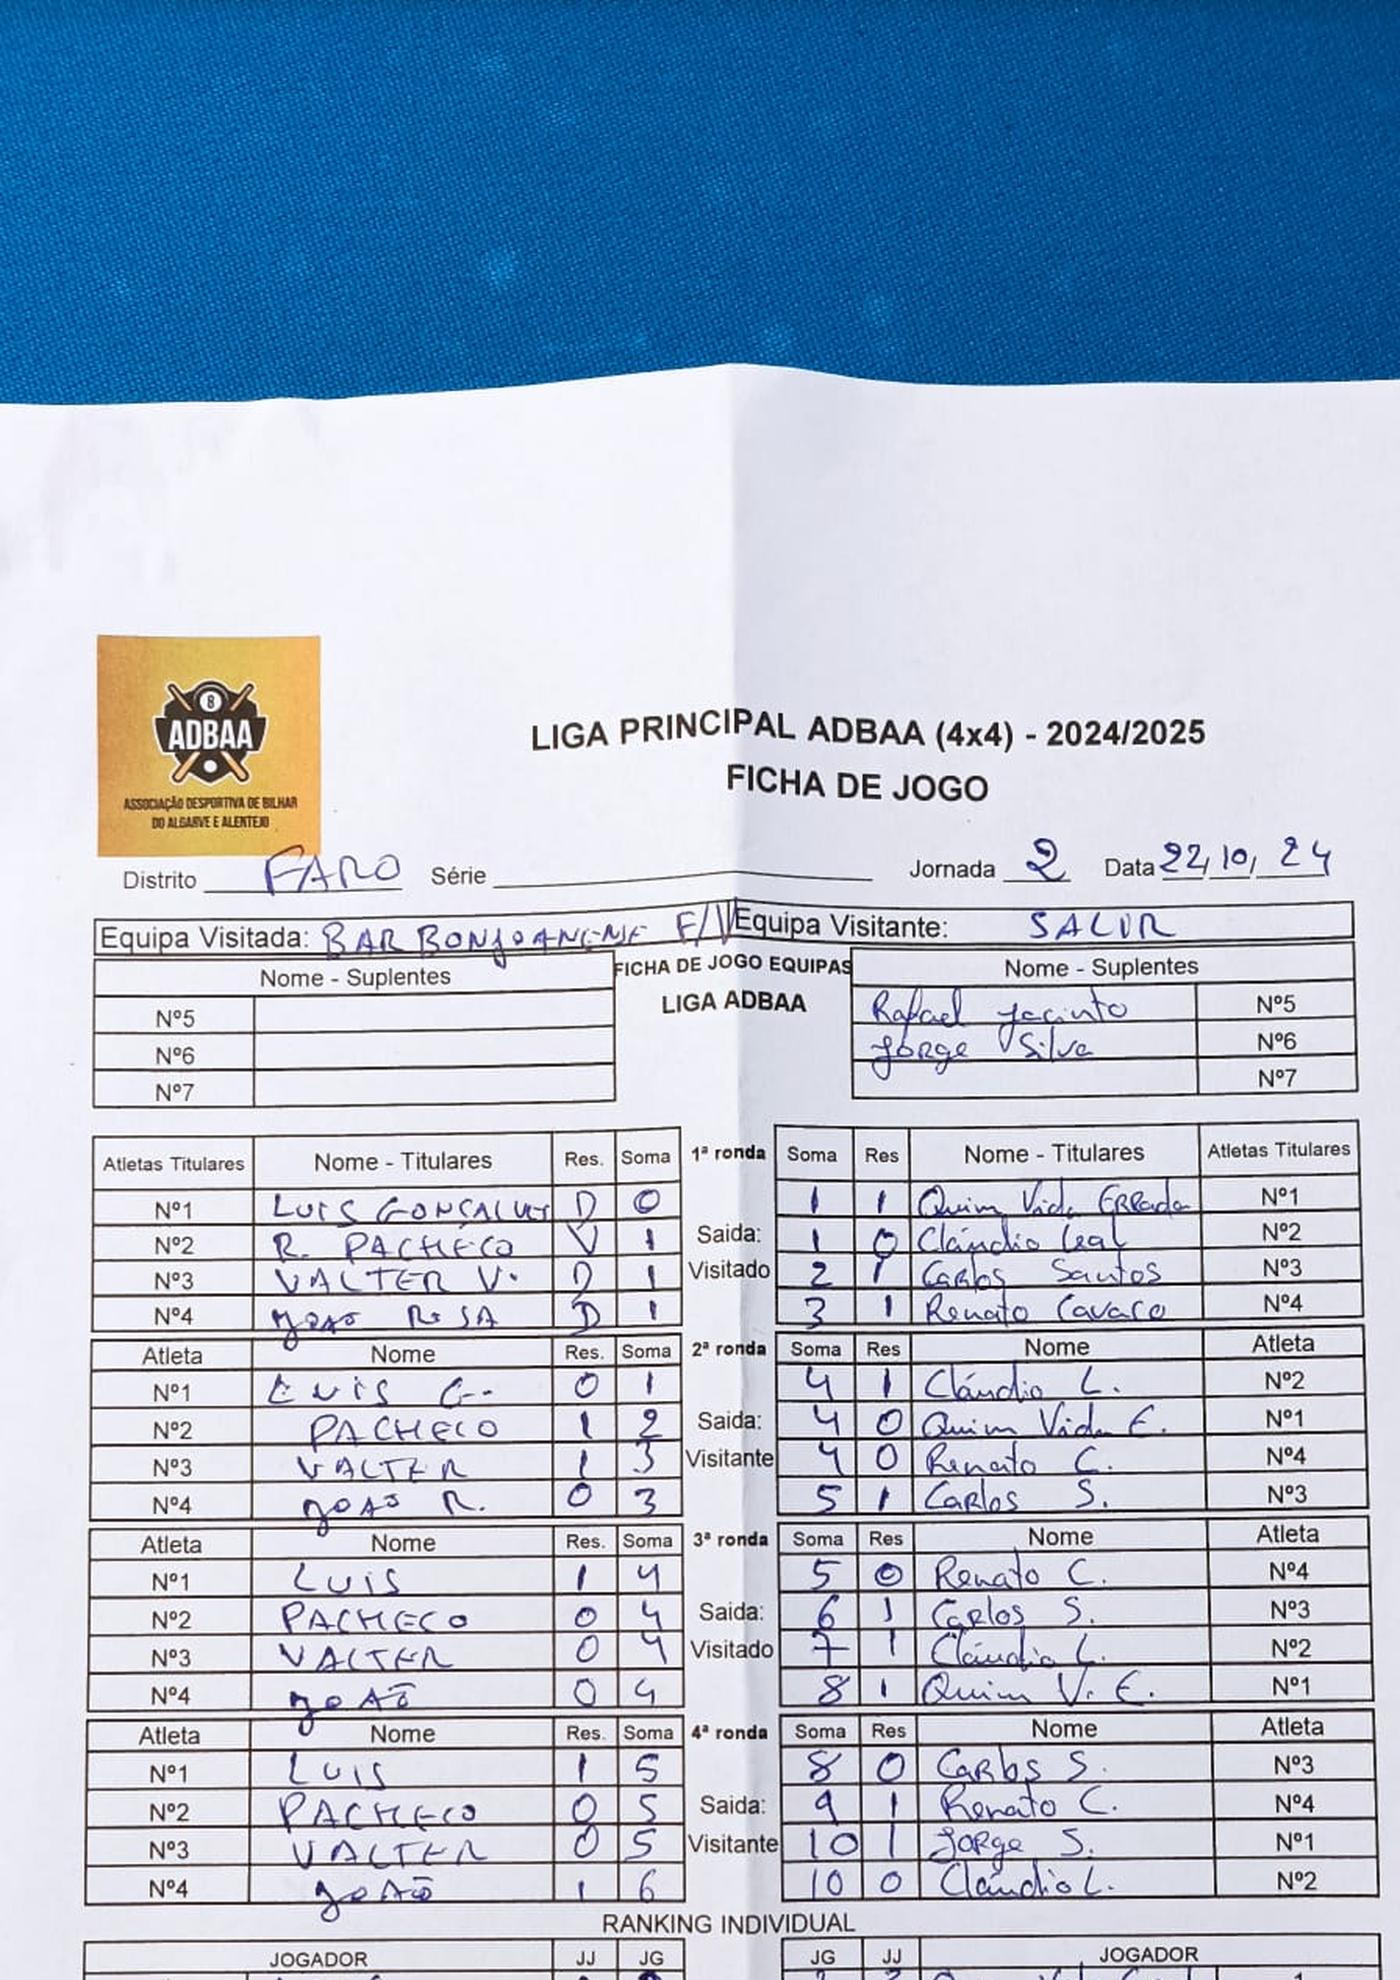 8
ADBAA
ASSOCIAÇÃO DESPORTIVA DE BILHAR
DO ALGARVE E ALENTEJO
LIGA PRINCIPAL ADBAA (4x4) - 2024/2025
FICHA DE JOGO
Distrito FARO Série Jornada 2 Data 22/10/24
Equipa Visitada: BAR BONJOANENSE F/V Equipa Visitante: SALIR
Nome - Suplentes FICHA DE JOGO EQUIPAS Nome - Suplentes
LIGA ADBAA
Nº5 Rafael Jacinto Nº5
Nº6 Jorge Silva Nº6
Nº7 Nº7
Atletas Titulares Nome - Titulares Res. Soma 1ª ronda Soma Res Nome - Titulares Atletas Titulares
Nº1 LUIS GONÇALVES D 0 1 1 Quim Vida Errada Nº1
Nº2 R. PACHECO V 1 Saida: 1 0 Cláudio Leal Nº2
Nº3 VALTER V. D 1 Visitado 2 1 Carlos Santos Nº3
Nº4 JOAO ROSA D 1 3 1 Renato Cavaco Nº4
Atleta Nome Res. Soma 2ª ronda Soma Res Nome Atleta
Nº1 LUIS G. 0 1 4 1 Cláudio L. Nº2
Nº2 PACHECO 1 2 Saida: 4 0 Quim Vida E. Nº1
Nº3 VALTER 1 3 Visitante 4 0 Renato C. Nº4
Nº4 JOAO R. 0 3 5 1 Carlos S. Nº3
Atleta Nome Res. Soma 3ª ronda Soma Res Nome Atleta
Nº1 LUIS 1 4 5 0 Renato C. Nº4
Nº2 PACHECO 0 4 Saida: 6 1 Carlos S. Nº3
Nº3 VALTER 0 4 Visitado 7 1 Cláudio L. Nº2
Nº4 JOAÕ 0 4 8 1 Quim V. E. Nº1
Atleta Nome Res. Soma 4ª ronda Soma Res Nome Atleta
Nº1 LUIS 1 5 8 0 Carlos S. Nº3
Nº2 PACHECO 0 5 Saida: 9 1 Renato C. Nº4
Nº3 VALTER 0 5 Visitante 10 1 Jorge S. Nº1
Nº4 JOAÕ 1 6 10 0 Cláudio L. Nº2
RANKING INDIVIDUAL
JOGADOR JJ JG JG JJ JOGADOR